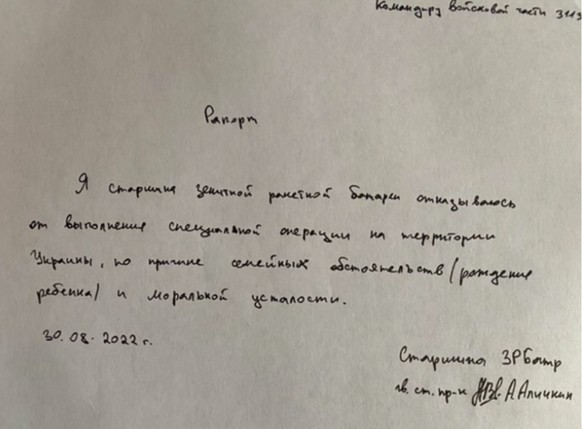 Командиру войсковой части 3113
Рапорт
Я старшина зенитной ракетной батареи отказываюсь
от выполнения специальной операции на территории
Украины, по причине семейных обстоятельств (рождение
ребенка) и моральной усталости.
30.08.2022 г.
Старшина ЗРБатр
гв. ст. пр-к А. Аличкин